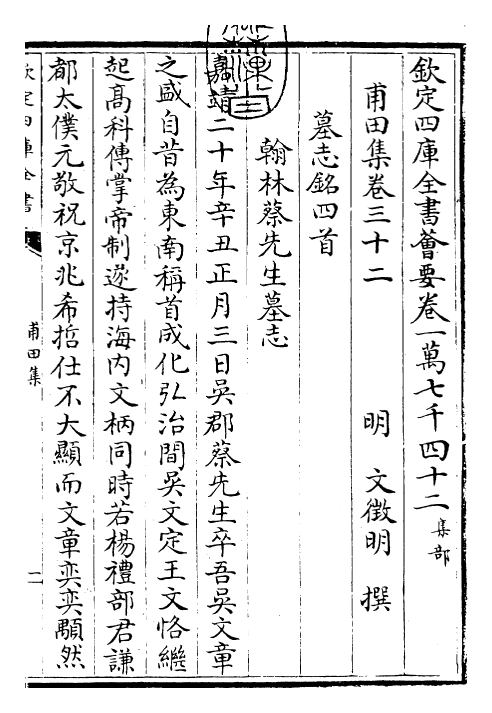 欽定四庫全書薈要卷一萬七千四十二 集部
甫田集卷三十二 明 文徵明 撰
墓志銘四首
翰林蔡先生墓志
嘉靖二十年辛丑正月三日吳郡蔡先生卒吾吳文章
之盛自昔為東南稱首成化弘治間吳文定王文恪繼
起髙科傳掌帝制遂持海内文柄同時若楊禮部君謙
都太僕元敬祝京兆希哲仕不大顯而文章奕奕顒然
欽定四庫全書
甫田集
一